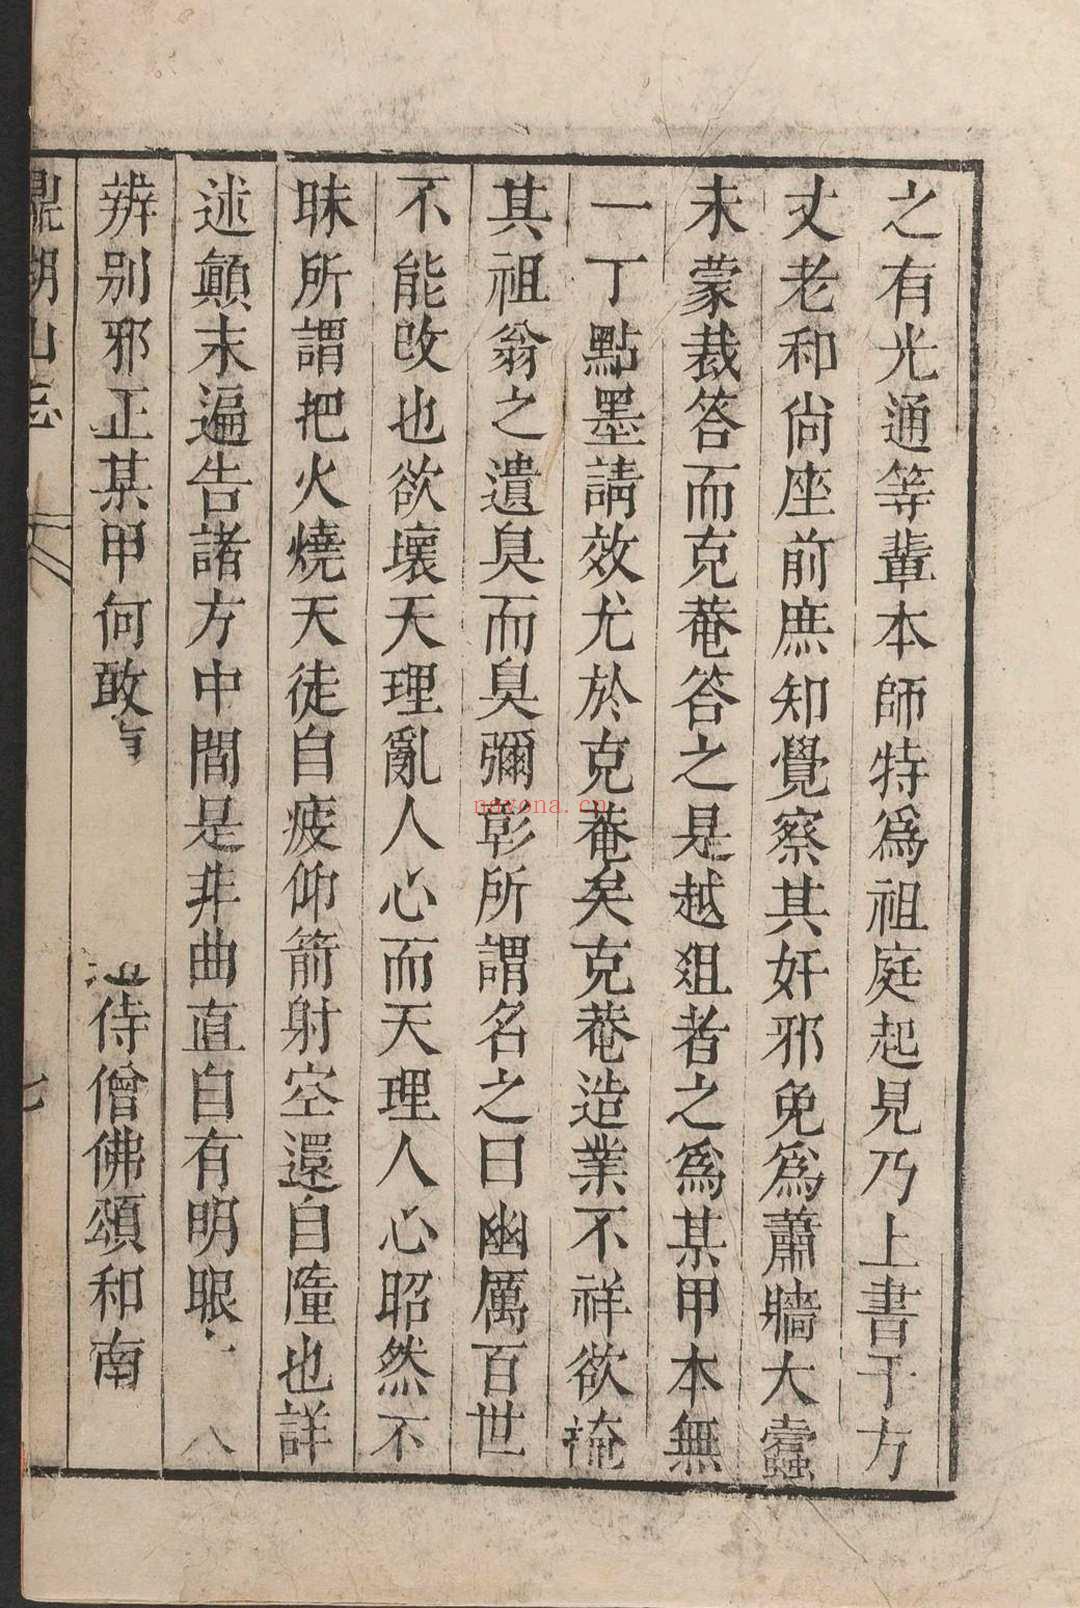 之有光通等輩本師特爲祖庭起見乃上書于方
丈老和尙座前庶知覺察其奸邪免爲蕭牆大蠹
未蒙裁答而克菴答之是越爼者之爲某甲本無
一丁點墨請效尤於克菴矣克菴造業不祥欲掩
其祖翁之遺臭而臭彌彰所謂名之曰幽厲百世
不能攺也欲壞天理亂人心而天理人心昭然不
昧所謂把火燒天徒自疲仰箭射空還自墮也詳
述顛末遍告諸方中間是非曲直自有明眼 八
辨别邪正某甲何敢 侍僧佛頌和南
鼎湖山志 七
navona.cn